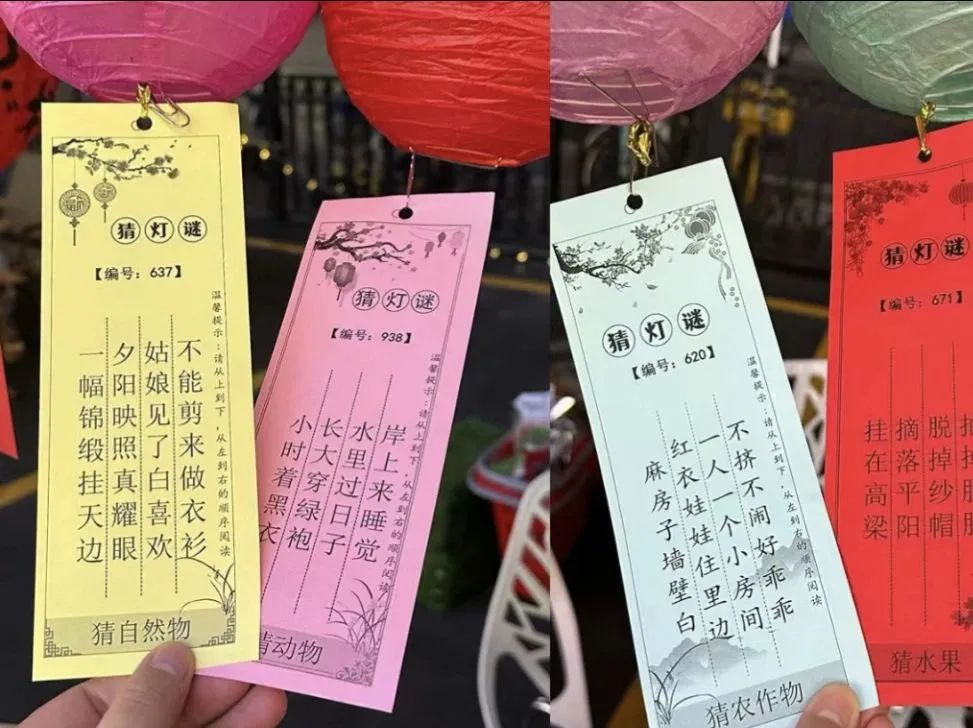 猜灯谜
【编号：637】
温馨提示：请从上到下，从左到右的顺序阅读
一幅锦缎挂天边
夕阳映照真耀眼
姑娘见了白喜欢
不能剪来做衣衫
猜自然物
猜灯谜
【编号：938】
温馨提示：请从上到下，从左到右的顺序阅读
小时着黑衣
长大穿绿袍
水里过日子
岸上来睡觉
猜动物
猜灯谜
【编号：620】
温馨提示：请从上到下，从左到右的顺序阅读
麻房子墙壁白
红衣娃娃住里边
一人一个小房间
不挤不闹好乖乖
猜农作物
猜灯谜
【编号：671】
挂在高梁
摘落平阳
脱掉纱帽
猜水果